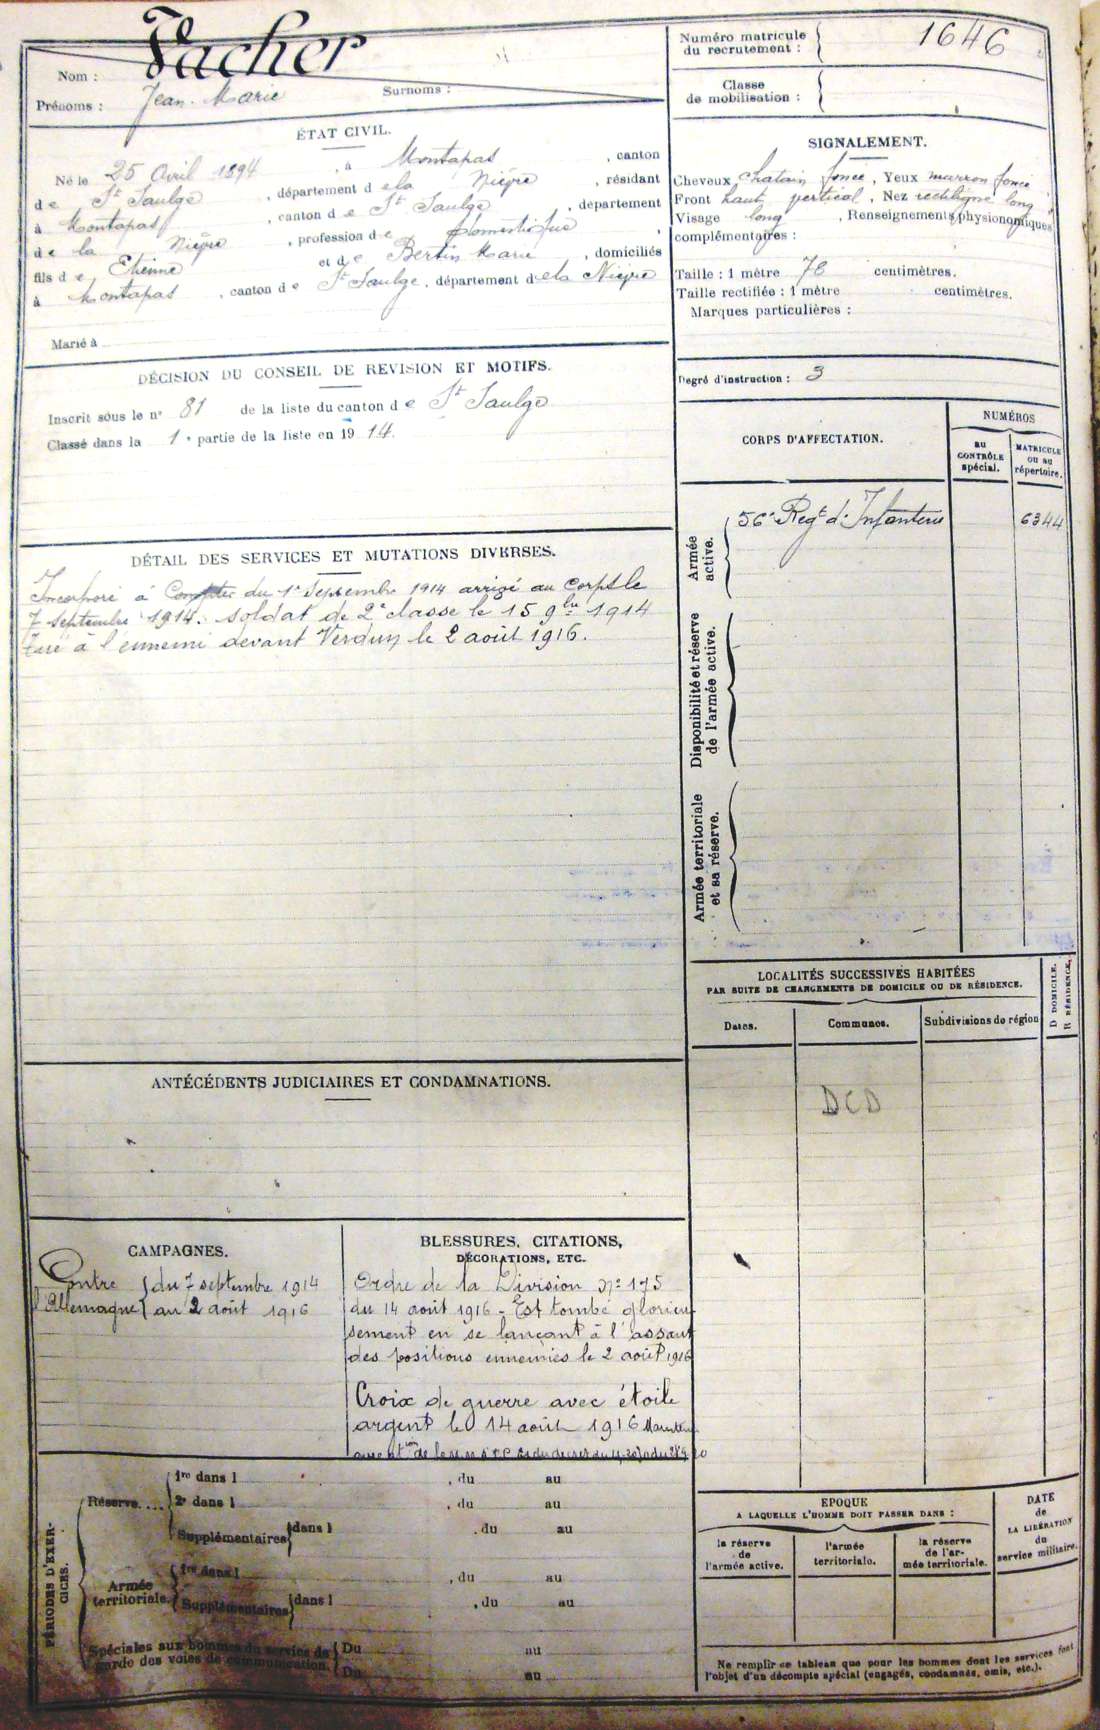 Nom : Vacher
Prénoms : Jean-Marie Surnoms :
Numéro matricule du recrutement : 1646
Classe de mobilisation :
ÉTAT CIVIL.
Né le 25 Avril 1894, à Montapas, canton
de St Saulge, département de la Nièvre, résidant
à Montapas, canton de St Saulge, département
de la Nièvre, profession de Domestique,
fils de Etienne et de Bertin Marie, domiciliés
à Montapas, canton de St Saulge, département de la Nièvre
Marié à
SIGNALEMENT.
Cheveux chatain foncé, Yeux marron foncé,
Front haut vertical, Nez rectiligne long
Visage long, Renseignements physionomiques
complémentaires :
Taille : 1 mètre 78 centimètres.
Taille rectifiée : 1 mètre centimètres.
Marques particulières :
Degré d'instruction : 3
DÉCISION DU CONSEIL DE REVISION ET MOTIFS.
Inscrit sous le n° 81 de la liste du canton de St Saulge
Classé dans la 1e partie de la liste en 1914.
CORPS D'AFFECTATION.
NUMÉROS
au CONTRÔLE spécial.
MATRICULE ou au répertoire.
Armée active.
56e Regt d'Infanterie 6344
Disponibilité et réserve de l'armée active.
Armée territoriale et sa réserve.
DÉTAIL DES SERVICES ET MUTATIONS DIVERSES.
Incorporé à Compter du 1er Septembre 1914 arrivé au Corps le
7 Septembre 1914. soldat de 2e classe le 15 9bre 1914
Tué à l'ennemi devant Verdun le 2 août 1916.
LOCALITÉS SUCCESSIVES HABITÉES
PAR SUITE DE CHANGEMENTS DE DOMICILE OU DE RÉSIDENCE.
Dates. Communes. Subdivisions de région
D DOMICILE.
R RÉSIDENCE.
DCD
ANTÉCÉDENTS JUDICIAIRES ET CONDAMNATIONS.
CAMPAGNES.
Contre l'Allemagne { du 7 septembre 1914
au 2 août 1916
BLESSURES, CITATIONS,
DÉCORATIONS, ETC.
Ordre de la Division No 175
du 14 août 1916 - Est tombé glorieu
sement en se lançant à l'assaut
des positions ennemies le 2 août 1916
Croix de guerre avec étoile
argent le 14 août 1916
PÉRIODES D'EXERCICES.
Réserve....
1re dans l , du au
2e dans l , du au
Supplémentaires dans l , du au
Armée territoriale.
1re dans l , du au
Supplémentaires dans l , du au
Spéciales aux hommes du service de
garde des voies de communication.
Du au
Du au
EPOQUE
A LAQUELLE L'HOMME DOIT PASSER DANS :
la réserve de l'armée active.
l'armée territoriale.
la réserve de l'armée territoriale.
DATE
de
LA LIBÉRATION
du
service militaire.
Ne remplir ce tableau que pour les hommes dont les services font
l'objet d'un décompte spécial (engagés, condamnés, omis, etc.).